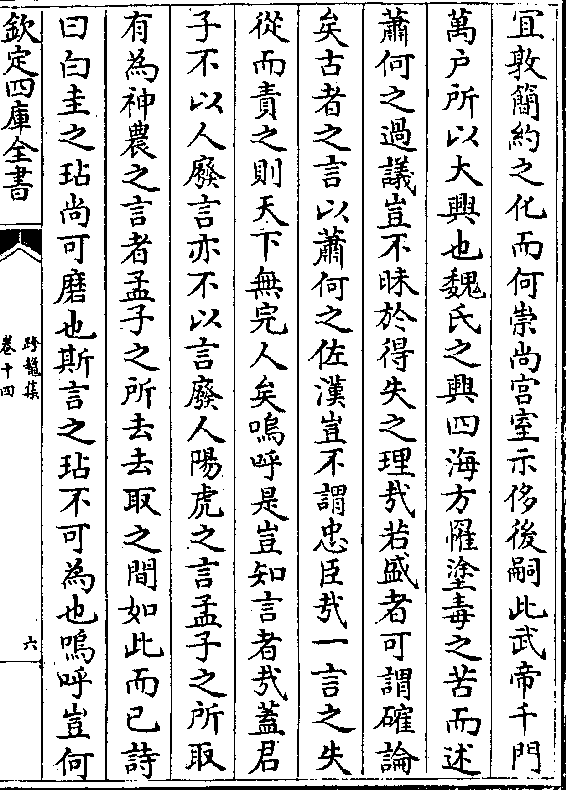 宜敦簡約之化而何崇尚宫室示侈後嗣此武帝千門
萬户所以大興也魏氏之興四海方罹塗毒之苦而述
蕭何之過議豈不昧於得失之理㢤若盛者可謂確論
矣古者之言以蕭何之佐漢豈不謂忠臣㢤一言之失
從而責之則天下無完人矣嗚呼是豈知言者㢤蓋君
子不以人廢言亦不以言廢人陽虎之言孟子之所取
有為神農之言者孟子之所去去取之間如此而已詩
曰白圭之玷尚可磨也斯言之玷不可為也嗚呼豈何
欽定四庫全書
跨鼇集
卷十四
六